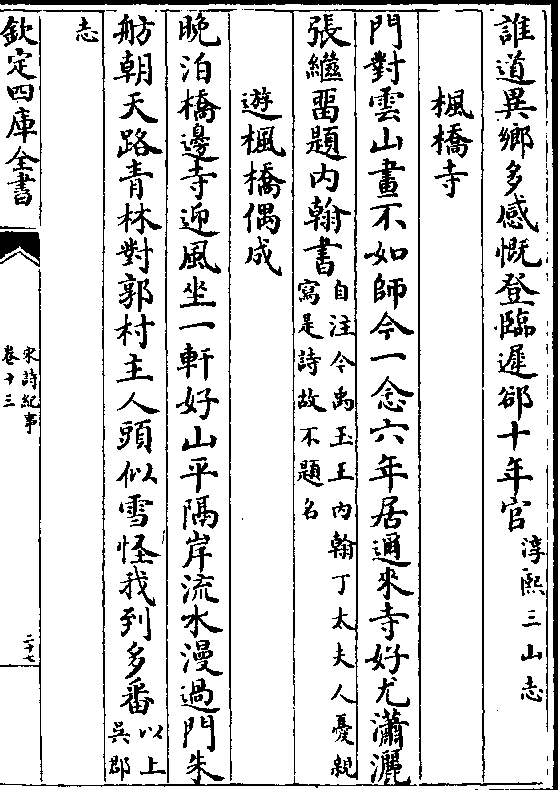 誰道異鄉多感慨登臨遲郤十年官淳熙三山志
楓橋寺
門對雲山畫不如師今一念六年居邇來寺好尤瀟灑
張繼畱題内翰書自注今禹玉王内翰丁太夫人憂親寫是詩故不題名
遊楓橋偶成
晚泊橋邊寺迎風坐一軒好山平隔岸流水漫過門朱
舫朝天路青林對郭村主人頭似雪怪我到多番以上吳郡
志
欽定四庫全書
宋詩紀事
卷十三
二十七